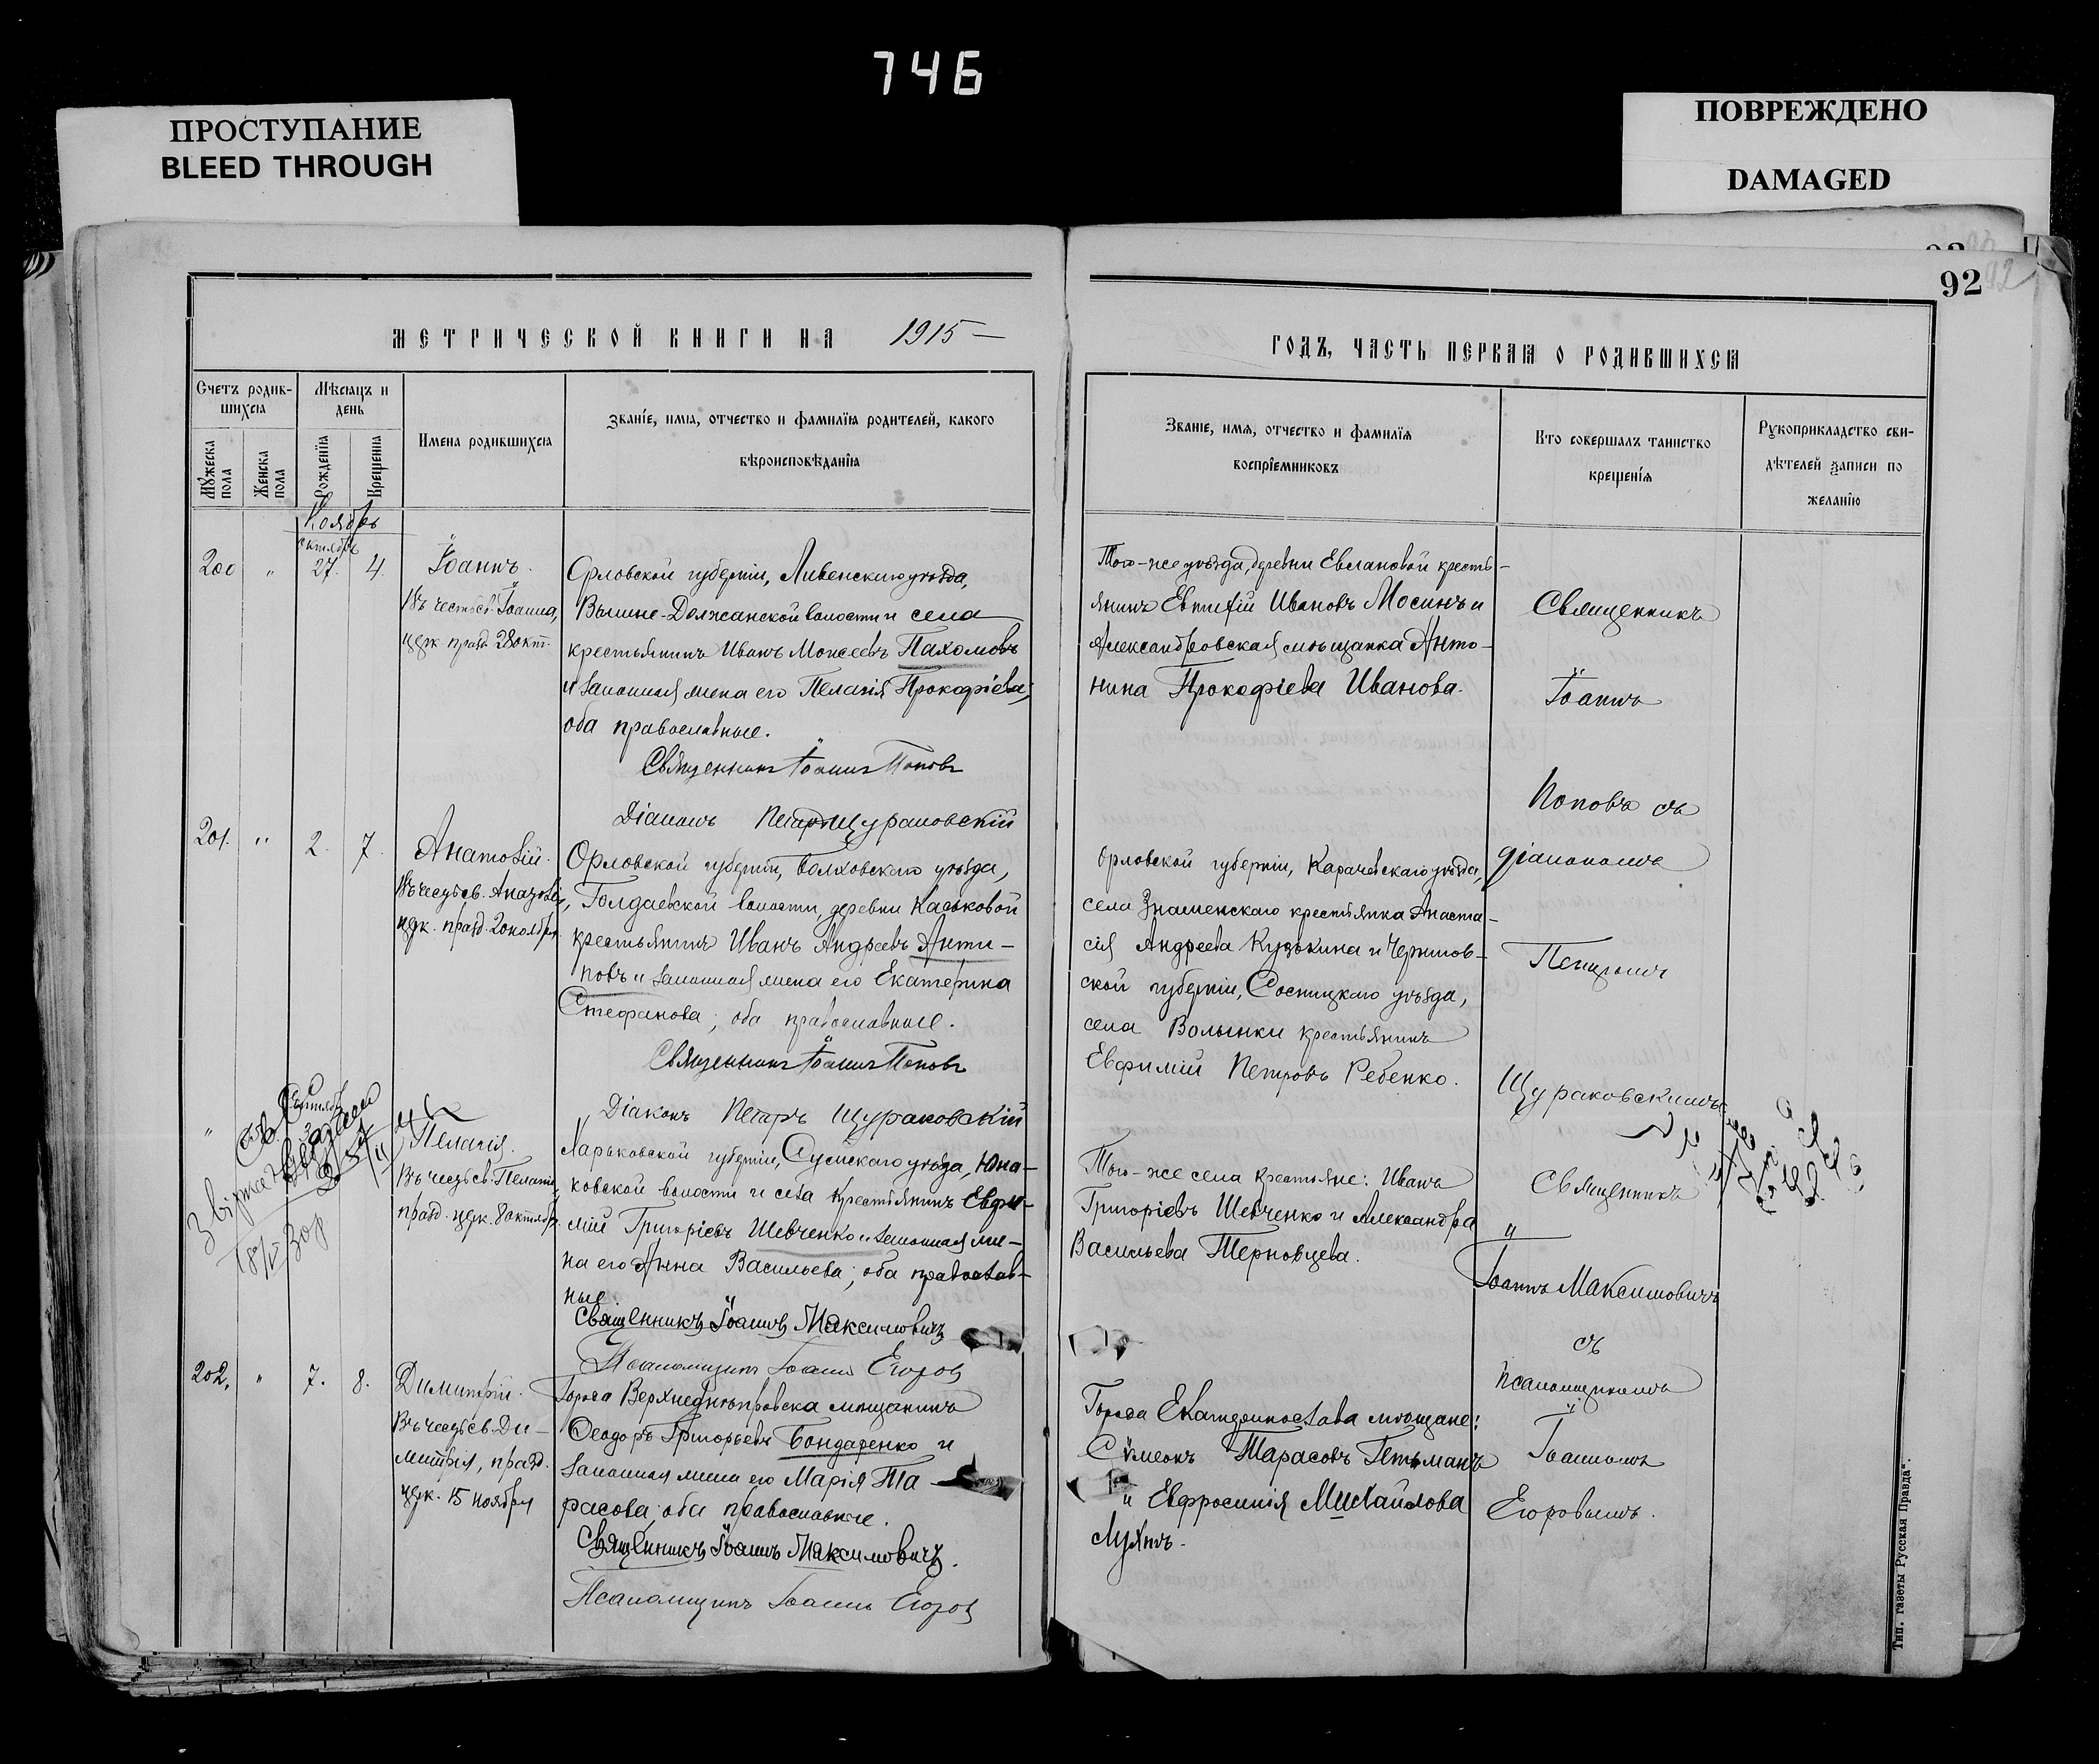 746
ПРОСТУПАНИЕ
BLEED THROUGH
ПОВРЕЖДЕНО
DAMAGED
92
МЕТРИЧЕСКОЙ КНИГИ НА 1915
ГОДЪ, ЧАСТЬ ПЕРВАЯ О РОДИВШИХСЯ
Счетъ родив-
шихся
Мѣсяцъ и
день
Имена родившихся
Званіе, имя, отчество и фамилія родителей, какого
вѣроисповѣданія
Мужеска
пола
Женска
пола
Рожденія
Крещенія
Званіе, имя, отчество и фамилія
воспріемниковъ
Кто совершалъ таинство
крещенія
Рукоприкладство сви-
дѣтелей записи по
желанію
Ноябрь
октября
200 " 27. 4.
Іоаннъ.
Въ честь св. Іоанна,
церк. празд. 28 окт.
Орловской губерніи, Ливенскаго уѣзда,
Вышне-Должанской волости и села
крестьянинъ Иванъ Моисеевъ Пахомовъ
и законная жена его Пелагія Прокофіева;
оба православные.
Священникъ Іоаннъ Поповъ
Діаконъ Петръ Щураковскій
Того-же уѣзда, деревни Евлановой кресть-
янинъ Евтихій Ивановъ Мосинъ и
Александровская мѣщанка Анто-
нина Прокофіева Иванова.
Священникъ
Іоаннъ
Поповъ съ
діакономъ
Петромъ
Щураковскимъ
201. " 2. 7.
Анатолій.
Въ честь св. Анатолія,
церк. празд. 20 ноября.
Орловской губерніи, Болховскаго уѣзда,
Голдаевской волости, деревни Каськовой
крестьянинъ Иванъ Андреевъ Анти-
повъ и законная жена его Екатерина
Стефанова; оба православные.
Священникъ Іоаннъ Поповъ
Діаконъ Петръ Щураковскій
Орловской губерніи, Карачевскаго уѣзда,
села Знаменскаго крестьянка Анаста-
сія Андреева Кузькина и Чернигов-
ской губерніи, Сосницкаго уѣзда,
села Волынки крестьянинъ
Евфимій Петровъ Ребенко.
"
Пелагія.
Въ честь св. Пелагіи,
празд. церк. 8 октября.
Харьковской губерніи, Сумскаго уѣзда, Юна-
ковской волости и села крестьянинъ Евфи-
мій Григоріевъ Шевченко и законная же-
на его Анна Васильева; оба православ-
ные.
Священникъ Іоаннъ Максимовичъ
Псаломщикъ Іоаннъ Егоровъ
Того-же села крестьяне: Иванъ
Григоріевъ Шевченко и Александра
Васильева Терновцева.
Священникъ
Іоаннъ Максимовичъ
съ
псаломщикомъ
Іоанномъ
Егоровымъ.
202. " 7. 8.
Димитрій.
Въ честь св. Ди-
митрія, празд.
церк. 15 ноября
Города Верхнеднѣпровска мѣщанинъ
Ѳеодоръ Григорьевъ Бондаренко и
законная жена его Марія Та-
расова; оба православные.
Священникъ Іоаннъ Максимовичъ.
Псаломщикъ Іоаннъ Егоровъ
Города Екатеринослава мѣщане:
Сѵмеонъ Тарасовъ Гетьманъ
и Евфросинія Михайлова
Тип. газеты "Русская Правда".